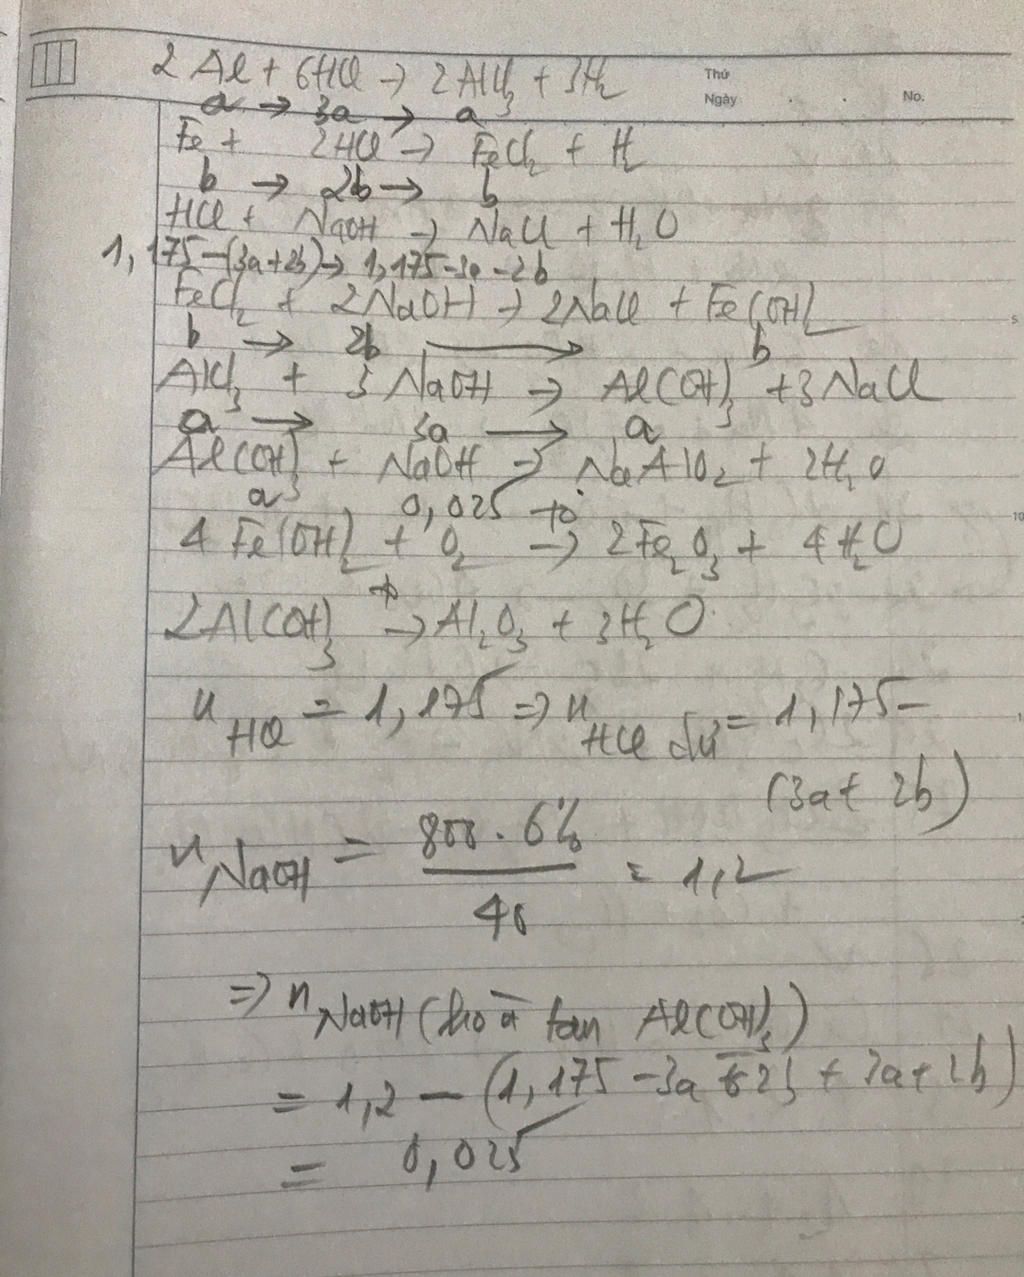 2Al + 6HCl → 2AlCl₃ + 3H₂
Thứ
Ngày . . No.
a → 3a → a
Fe + 2HCl → FeCl₂ + H₂
b → 2b → b
HCl + NaOH → NaCl + H₂O
1,175-(3a+2b) → 1,175-3a-2b
FeCl₂ + 2NaOH → 2NaCl + Fe(OH)₂
5
b → 2b → b
AlCl₃ + 3NaOH → Al(OH)₃ + 3NaCl
a → 3a → a
Al(OH)₃ + NaOH → NaAlO₂ + 2H₂O
a 0,025
10
4Fe(OH)₂ + O₂ →t° 2Fe₂O₃ + 4H₂O
2Al(OH)₃ →t° Al₂O₃ + 3H₂O
n HCl = 1,175 => n HCl dư = 1,175 -
(3a + 2b)
n NaOH = 800 . 6% / 40 = 1,2
=> n NaOH (hoà tan Al(OH)₃)
= 1,2 - (1,175 - 3a - 2b + 3a + 2b)
= 0,025